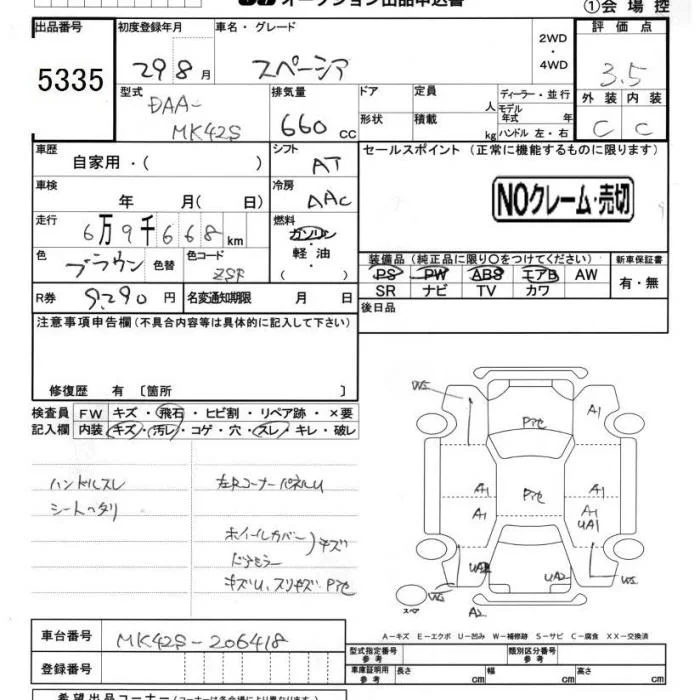 オークション出品申込書
①会場控
出品番号 初度登録年月 車名・グレード 2WD・4WD 評価点
5335 29 8月 スペーシア 3.5
型式 排気量 ドア 定員 人 ディーラー・並行 外装 内装
DAA- MK42S 660 cc 形状 積載 kg モデル年式 年 C C
ハンドル 左・右
車歴 シフト セールスポイント (正常に機能するものに限ります)
自家用・( ) AT
車検 年 月( 日) 冷房 AAC NOクレーム・売切
走行 6万9千668km 燃料 ガソリン・軽油( )
色 ブラウン 色替 色コード ZSF
装備品(純正品に限り○をつけてください) 新車保証書
PS PW ABS エアB AW 有・無
SR ナビ TV カワ
R券 9.290円 名変通知期限 月 日
後日品
注意事項申告欄(不具合内容等は具体的に記入して下さい)
修復歴 有〔箇所 〕
検査員 FW キズ・飛石・ヒビ割・リペア跡・×要
記入欄 内装 キズ・汚レ・コゲ・穴・スレ・キレ・破レ
ハンドルスレ
シートヘタリ
左RコーナーパネルU
ホイールカバー
ドアミラー
)キズ
キズU、スリキズ・Pアセ
WS
A1
Pアセ
A1 Pアセ A1
A1 A1
UA1
UA2
WS WS
スペア
A2
A-キズ E-エクボ U-凹み W-補修跡 S-サビ C-腐食 XX-交換済
車台番号 MK42S-206418
型式指定番号 参考 類別区分番号 参考
登録番号
車庫証明用 参考 長さ cm 幅 cm 高さ cm
希望出品コーナー(コーナーは各会場により